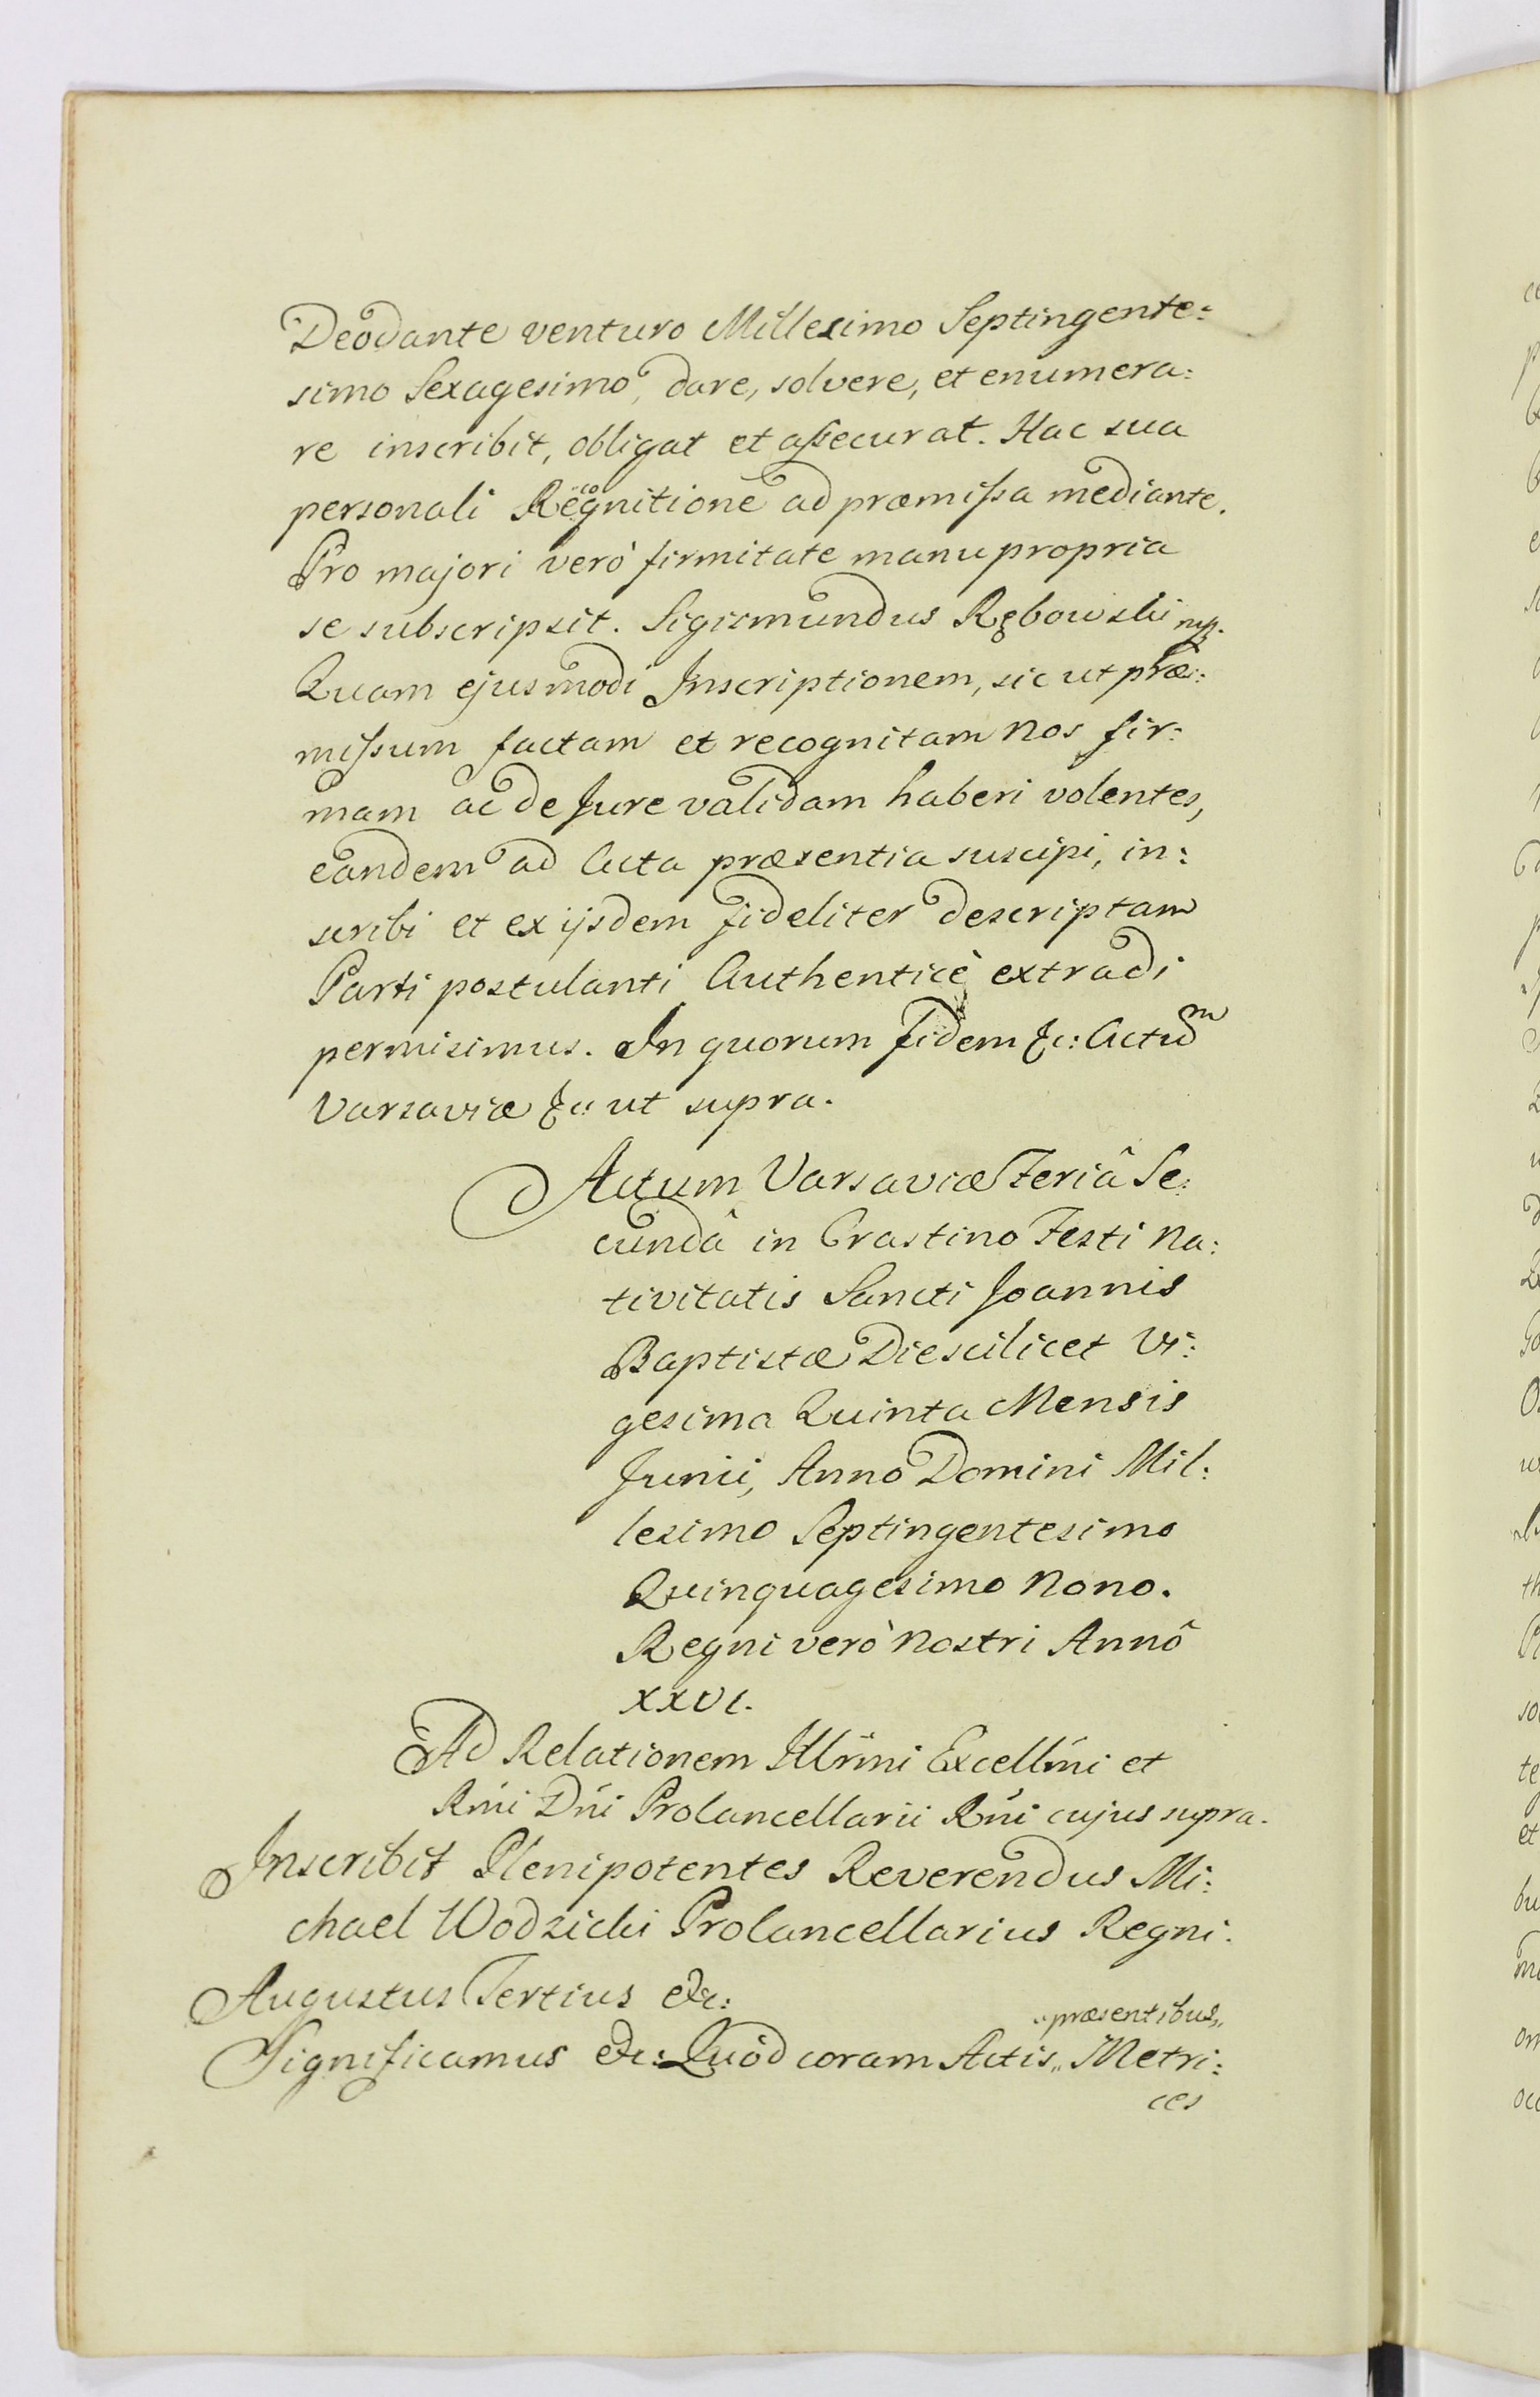 Deodante venturo Millesimo Septingente:
simo Sexagesimo, dare, solvere, et enumera:
re inscribit, obligat et aſsecurat. Hac sua
personali Recognitione ad præmiſsa mediante.
Pro majori verò firmitate manu propria
se subscripsit. Sigismundus Rębowski mp.
Quam ejusmodi Inscriptionem, sic ut præ:
miſsum factam et recognitam Nos fir:
mam ac de Jure validam haberi volentes,
eandem ad Acta præsentia suscipi, in:
scribi et ex ijsdem fideliter descriptam
Parti postulanti Authenticè extradi
permisimus. In quorum fidem &c: Actum
Varsaviæ &c: ut supra.
Actum Varsaviæ Feriâ Se:
cundâ in Crastino Festi Na:
tivitatis Sancti Joannis
Baptistæ Die scilicet Vi:
gesima Quinta Mensis
Junii, Anno Domini Mil:
lesimo Septingentesimo
Quinquagesimo Nono.
Regni verò Nostri Annô
XXVI.
Ad Relationem Illrmi Excellmi et
Rmi Dni Procancellarii Rni cujus supra.
Inscribit Plenipotentes Reverendus Mi:
chael Wodzicki Procancellarius Regni.
Augustus Tertius &c:
Significamus &c: Quòd coram Actis „præsentibus„ Metri:
ces